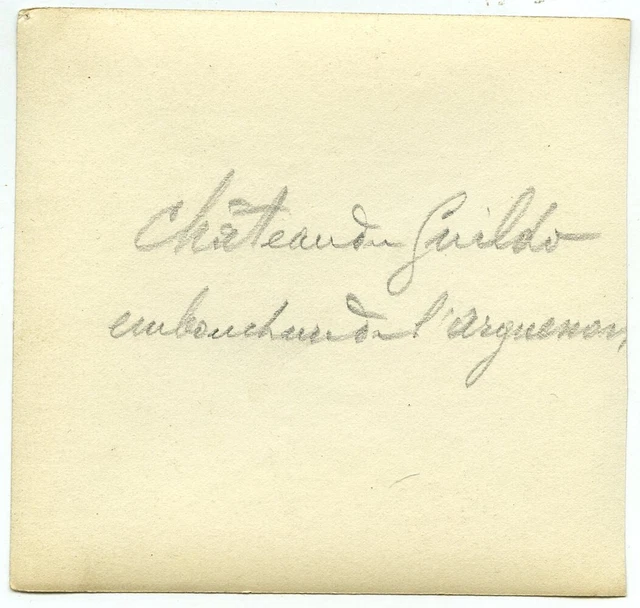 Château du Guildo
embouchure de l'Arguenon